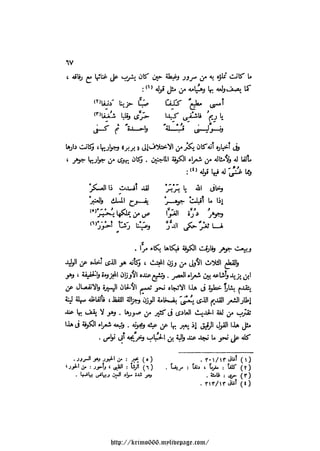 ٦٧
ما كانت تملؤه به من سرور وغبطة حين كان يشرب على غنائها مع رفاقه ،
كما يصف ولعه بها وهيامه من مثل قوله (١) :
أمسى مطيعٌ كلفَا صبًّا حزينا دنفَا (٢)
يا ريمُ فاشفى كبدا حرَّى وقلبا شُغِفَا (٣)
ونوِّلينى قُبلةً واحدةً ثم كفى
وفى أخباره أنه كان يكثر من الاختلاف إلى « بربر » وجواريها، وكانت دارها
مألفا له ولأمثاله من شعراء الكوفة الماجنين . وكان يهوى من جواريها جوهر ،
ومما غُنِّىَ له فيها قوله (٤) :
وخافى الله يا بَرْبَرْ لقد أفسدتِ ذا العسكرْ
إذا ما أقبلتْ جوهرْ يفوح المسك والعنبرْ
وجوهر دُرَّةُ الغوَّا ص من يملكها يُحْبَرْ (٥)
لها ثغرٌ حكى الدُّرَّ وعينا رَشَأٍ أحْوَرْ (٦)
وبيعت جوهر وفارقت الكوفة فبكاها بكاء مرًّا .
والقطع الثلاث الأولى من وزن المجتث ، وكأنه هو الذى أخذه عن الوليد
ابن يزيد وأشاعه بين شعراء العصر . وتشيع عنده الأوزان المجزوءة والخفيفة ، وهو
يتقدم بشاراً خطوة فى هذا الاتجاه نحو تعميم الألحان اليسيرة والانفصال عن
إطار الشعر القديم الذى يُعْنَى بفخامة الوزن وجزالة اللفظ، فألفاظه سهلة لينة
تقترب من لغة الحديث العادى فى كثير من صورها . وهو لا يقف بها عند
مثل هذا القول الرقيق إذ يعبر بها عن عبثه ومجونه . وتبعه شعراء الكوفة فى هذا
كله على نحو ما نجد عند والبة بن الحُبَاب وخِرِّيجه أبى نواس .
(١) أغانى ٣٠١/١٣ .
(٢) كلفاً : مغرماً ، دنفاً : مريضاً .
(٣) حرى : ظامئة .
(٤) أغانى ٣١٢/١٣
(٥) يحبر : من الحبور وهو السرور .
(٦) الرشأ : الظبى ، وأحور : من الحور،
وهو شدة سواد العين وبياض بياضها .
http://krimo666.mylivepage.com/